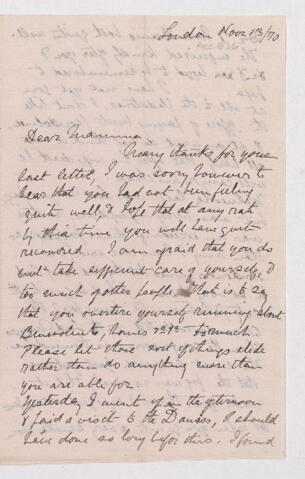 London Nov 13/70
Dear Mamma
Many thanks for your
last letter, I was sorry however to
hear that you had not been feeling
quite well, & hope that at any rate
by this time you will have quite
recovered. I am afraid that you do
not take sufficient care of yourself &
too much of other people. That is to say
that you overtire yourself running about
Benevolent, homes &c &c too much
Please let those sort of things slide
rather than do anything more than
you are able for
Yesterday I went up in the afternoon
& paid a visit to the Davies, I should
have done so long before this. I found